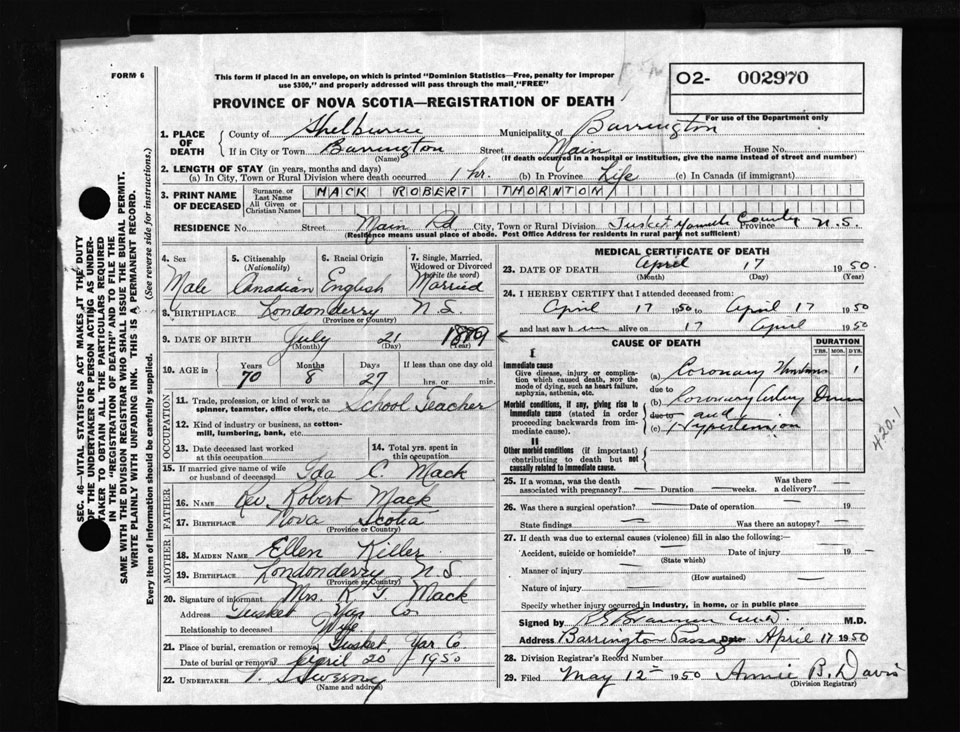 FORM 6
This form if placed in an envelope, on which is printed "Dominion Statistics—Free, penalty for improper
use $300," and properly addressed will pass through the mail, "FREE"
O2- 002970
For use of the Department only
PROVINCE OF NOVA SCOTIA—REGISTRATION OF DEATH
1. PLACE OF DEATH
County of Shelburne Municipality of Barrington
If in City or Town Barrington Street Main House No.
(Name) (If death occurred in a hospital or institution, give the name instead of street and number)
2. LENGTH OF STAY (in years, months and days)
(a) In City, Town or Rural Division where death occurred 1 hr. (b) In Province Life (c) In Canada (if immigrant)
3. PRINT NAME OF DECEASED
Surname or Last Name MACK ROBERT THORNTON
All Given or Christian Names
RESIDENCE No. Street Main Rd. City, Town or Rural Division Tusket Yarmouth County Province N.S.
(Residence means usual place of abode. Post Office Address for residents in rural parts not sufficient)
4. Sex Male
5. Citizenship (Nationality) Canadian
6. Racial Origin English
7. Single, Married, Widowed or Divorced (write the word) Married
8. BIRTHPLACE Londonderry N.S.
(Province or Country)
9. DATE OF BIRTH July 21 1879
(Month) (Day) (Year)
10. AGE in Years 70 Months 8 Days 27 If less than one day old
hrs. or min.
OCCUPATION
11. Trade, profession, or kind of work as spinner, teamster, office clerk, etc. School Teacher
12. Kind of industry or business, as cotton-mill, lumbering, bank, etc.
13. Date deceased last worked at this occupation
14. Total yrs. spent in this occupation
15. If married give name of wife or husband of deceased Ida C. Mack
FATHER
16. NAME Rev Robert Mack
17. BIRTHPLACE Nova Scotia
(Province or Country)
MOTHER
18. MAIDEN NAME Ellen Killer
19. BIRTHPLACE Londonderry N.S
(Province or Country)
20. Signature of informant Mrs. R T. Mack
Address Tusket Yar Co
Relationship to deceased Wife
21. Place of burial, cremation or removal Tusket, Yar. C.
Date of burial or removal April 20 1950
22. UNDERTAKER V. Sweeny
(Name and address)
MEDICAL CERTIFICATE OF DEATH
23. DATE OF DEATH April 17 1950.
(Month) (Day)
24. I HEREBY CERTIFY that I attended deceased from:
April 17 1950 to April 17 1950
and last saw him alive on 17 April 1950
CAUSE OF DEATH
DURATION
YRS. MOS. DYS.
I
Immediate cause
Give disease, injury or complication which caused death, NOT the mode of dying, such as heart failure, asphyxia, asthenia, etc.
(a) Coronary 1
due to
Morbid conditions, if any, giving rise to immediate cause (stated in order proceeding backwards from immediate cause).
(b) Coronary
due to and
(c) Hypertension
420.1
II
Other morbid conditions (if important) contributing to death but not causally related to immediate cause.
25. If a woman, was the death associated with pregnancy? — Duration — weeks. Was there a delivery? —
26. Was there a surgical operation? — Date of operation — 19
State findings — Was there an autopsy? —
27. If death was due to external causes (violence) fill in also the following:—
Accident, suicide or homicide? — Date of injury — 19 —
(State which)
Manner of injury —
(How sustained)
Nature of injury —
Specify whether injury occurred in industry, in home, or in public place
Signed by M.D.
Address Barrington Passage Date April 17 1950
28. Division Registrar's Record Number
29. Filed May 12 1950 Annie B. Davis
(Division Registrar)
SEC. 46—VITAL STATISTICS ACT MAKES IT THE DUTY
OF THE UNDERTAKER OR PERSON ACTING AS UNDER-
TAKER TO OBTAIN ALL THE PARTICULARS REQUIRED
IN THE "REGISTRATION OF DEATH" AND TO FILE THE
SAME WITH THE DIVISION REGISTRAR WHO SHALL ISSUE THE BURIAL PERMIT.
WRITE PLAINLY WITH UNFADING INK. THIS IS A PERMANENT RECORD.
Every item of information should be carefully supplied. (See reverse side for instructions.)